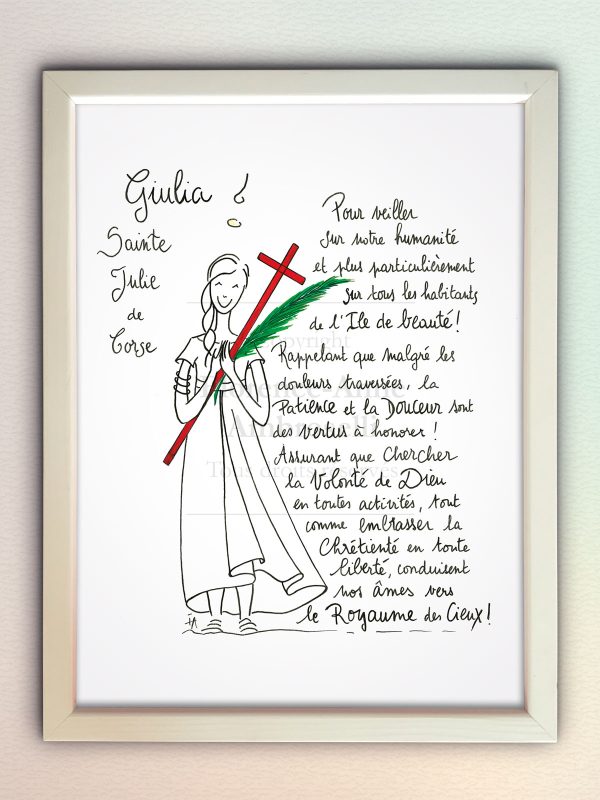 Giulia
Sainte
Julie
de
Corse
Pour veiller
sur notre humanité
et plus particulièrement
sur tous les habitants
de l'Ile de beauté!
Rappelant que malgré les
douleurs traversées, la
Patience et la Douceur sont
des vertus à honorer!
Assurant que Chercher
la Volonté de Dieu
en toutes activités, tout
comme embrasser la
Chrétienté en toute
liberté, conduisent
nos âmes vers
le Royaume des Cieux!
Copyright
Ambroselli
Tous droits réservés